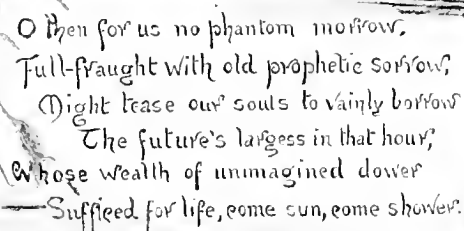 O then for us no phantom morrow,
Full-fraught with old prophetic sorrow,
Might tease our souls to vainly borrow
The future's largess in that hour,
Whose wealth of unimagined dower
—Sufficed for life, come sun, come shower.